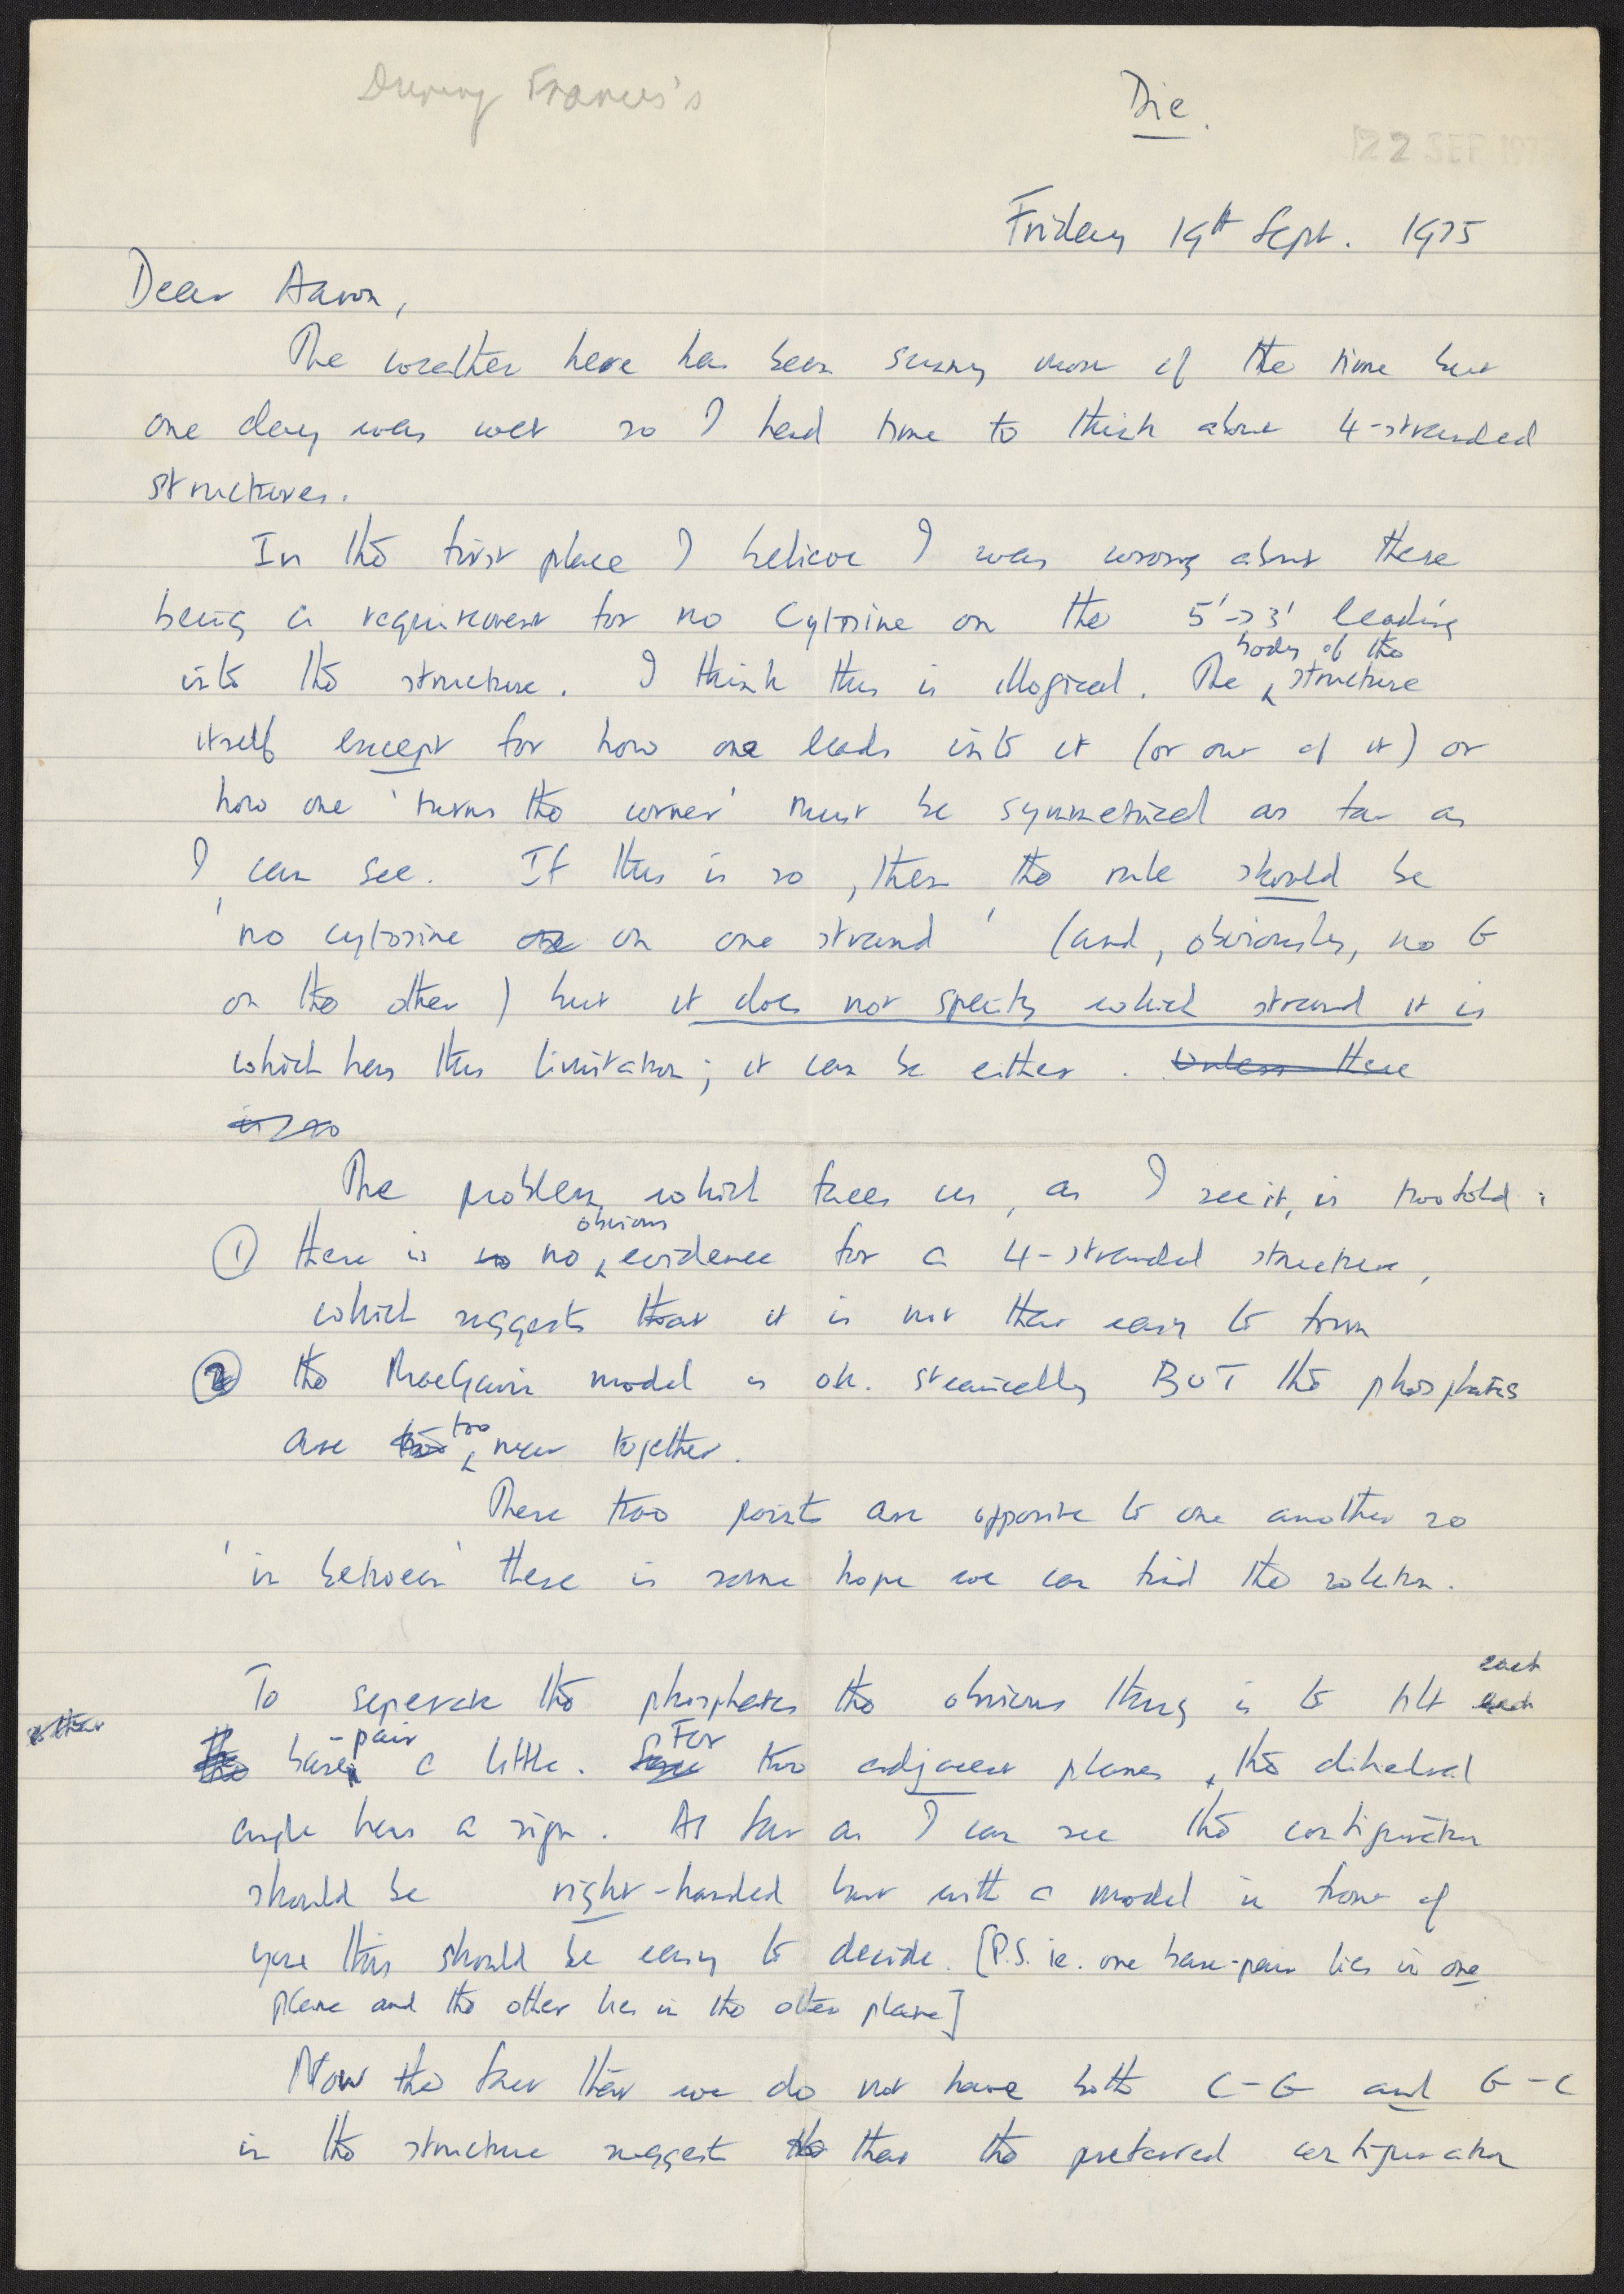 During Francis's
Die.
22 SEP 197
Friday 19th Sept. 1975
Dear Aaron,
The weather here has been sunny most of the time but
one day was wet so I had time to think about 4-stranded
structures.
In the first place I believe I was wrong about there
being a requirement for no Cytosine on the 5'->3' leading
into the structure. I think this is illogical. The body of the structure
itself except for how one leads into it (or out of it) or
how one 'turns the corner' must be symmetrical as far as
I can see. If this is so, then the rule should be
'no cytosine on one strand' (and, obviously, no G
on the other) but it does not specify which strand it is
which has this limitation; it can be either. Unless there
is so
The problem which faces us, as I see it, is twofold:
① there is no no obvious evidence for a 4-stranded structure,
which suggests that it is not that easy to form
② the MacGavin model is ok. sterically BUT the phosphates
are too too near together.
These two points are opposite to one another so
'in between' there is some hope we can find the solution.
To seperate the phosphates the obvious thing is to tilt each each
the base-pair a little. For two adjacent planes, the dihedral
angle has a sign. As far as I can see the configuration
should be right-handed but with a model in front of
you this should be easy to decide. [P.S. ie. one base-pair lies in one
plane and the other lies in the other plane]
Now the fact that we do not have both C-G and G-C
in the structure suggest the that the preferred configuration